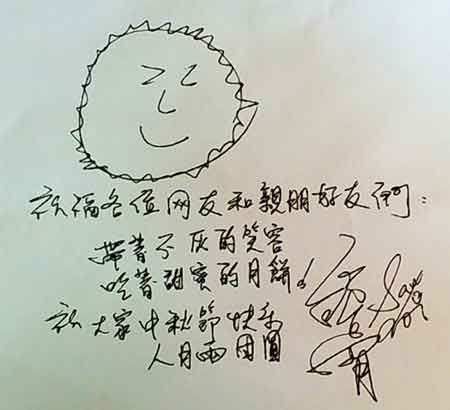 祝福各位网友和親朋好友們：
帶著不灰的笑容
吃著甜蜜的月餅！
祝大家中秋節快乐
人月兩团圓